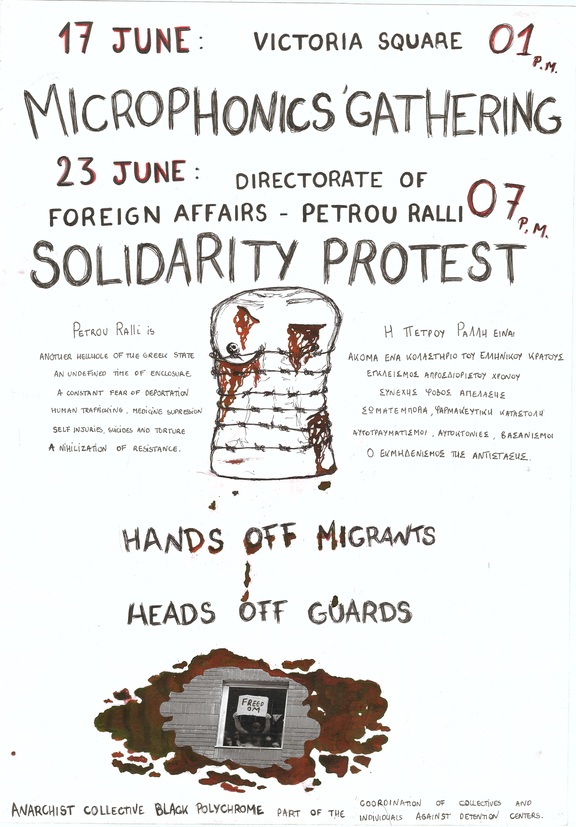 17 JUNE: VICTORIA SQUARE 01 P.M.
MICROPHONICS'GATHERING
23 JUNE: DIRECTORATE OF
FOREIGN AFFAIRS - PETROU RALLI 07 P.M.
SOLIDARITY PROTEST
PETROU RALLI IS
ANOTHER HELLHOLE OF THE GREEK STATE
AN UNDEFINED TIME OF ENCLOSURE
A CONSTANT FEAR OF DEPORTATION
HUMAN TRAFFICKING, MEDICINE SUPRESION
SELF INSURIES, SUICIDES AND TORTURE
A NIHILIZATION OF RESISTANCE.
Η ΠΕΤΡΟΥ ΡΑΛΛΗ ΕΙΝΑΙ
ΑΚΟΜΑ ΕΝΑ ΚΟΛΑΣΤΗΡΙΟ ΤΟΥ ΕΛΛΗΝΙΚΟΥ ΚΡΑΤΟΥΣ
ΕΓΚΛΕΙΣΜΟΣ ΑΠΡΟΣΔΙΟΡΙΣΤΟΥ ΧΡΟΝΟΥ
ΣΥΝΕΧΗΣ ΦΟΒΟΣ ΑΠΕΛΑΣΗΣ
ΣΩΜΑΤΕΜΠΟΡΙΑ, ΦΑΡΜΑΚΕΥΤΙΚΗ ΚΑΤΑΣΤΟΛΗ
ΑΥΤΟΤΡΑΥΜΑΤΙΣΜΟΙ, ΑΥΤΟΚΤΟΝΙΕΣ, ΒΑΣΑΝΙΣΜΟΙ
Ο ΕΚΜΗΔΕΝΙΣΜΟΣ ΤΗΣ ΑΝΤΙΣΤΑΣΗΣ.
HANDS OFF MIGRANTS
HEADS OFF GUARDS
FREED
OM
ANARCHIST COLLECTIVE BLACK POLYCHROME PART OF THE COORDINATION OF COLLECTIVES AND
INDIVIDUALS AGAINST DETENTION CENTERS.